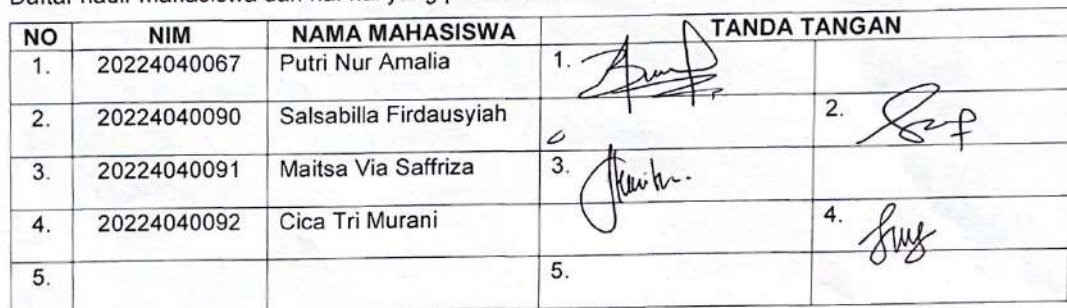 NO NIM NAMA MAHASISWA TANDA TANGAN
1. 20224040067 Putri Nur Amalia 1.
2. 20224040090 Salsabilla Firdausyiah 2.
3. 20224040091 Maitsa Via Saffriza 3.
4. 20224040092 Cica Tri Murani 4.
5. 5.